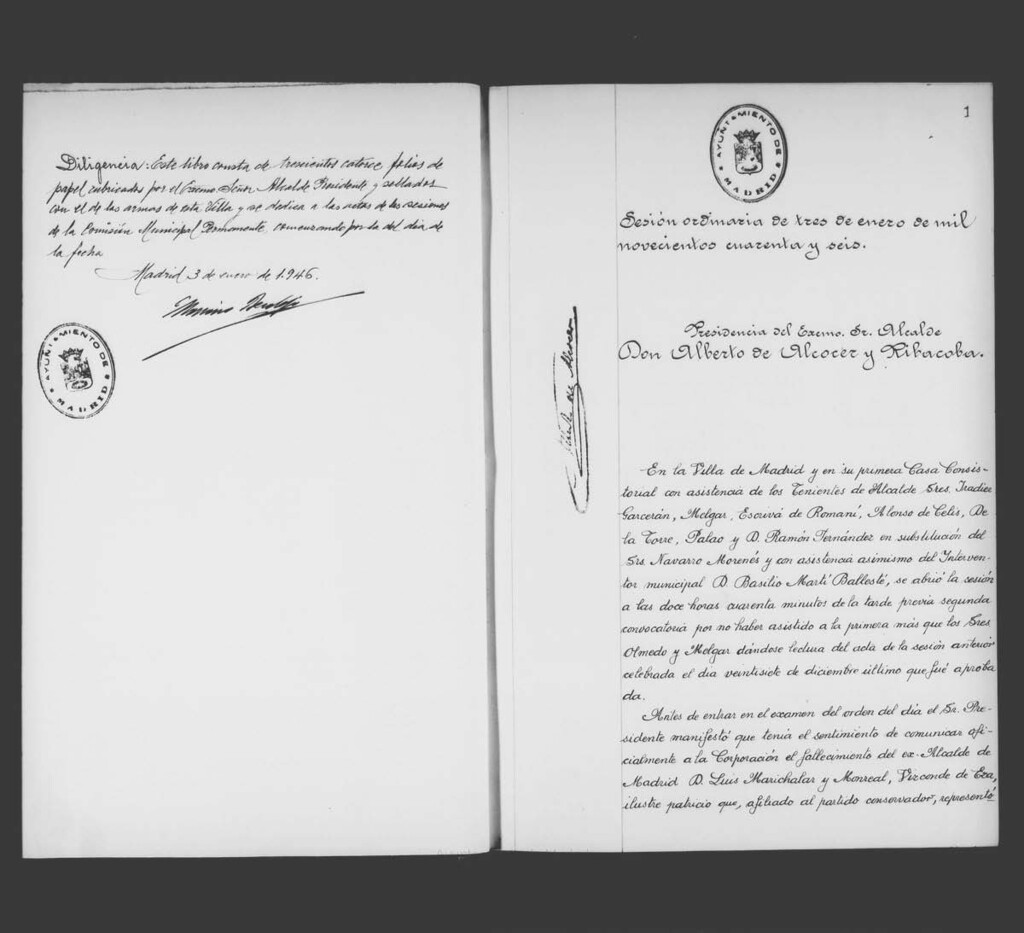 Diligencia: Este libro consta de trescientos catorce folios de
papel rubricados por el Excmo. Señor Alcalde Presidente y sellados
con el de las armas de esta Villa y se dedica a las actas de las sesiones
de la Comisión Municipal Permanente comenzando por la del día de
la fecha
Madrid 3 de enero de 1.946.
AYUNTAMIENTO DE
MADRID
1
AYUNTAMIENTO DE
MADRID
Sesión ordinaria de tres de enero de mil
novecientos cuarenta y seis.
Presidencia del Excmo. Sr. Alcalde
Don Alberto de Alcocer y Ribacoba.
En la Villa de Madrid y en su primera Casa Consis-
torial con asistencia de los Tenientes de Alcalde Sres. Iradier
Garcerán, Melgar, Escrivá de Romaní, Alonso de Celis, De
la Torre, Palao y D. Ramón Fernández en substitución del
Srs. Navarro Morenés y con asistencia asimismo del Interven-
tor municipal D. Basilio Martí Ballesté, se abrió la sesión
a las doce horas cuarenta minutos de la tarde previa segunda
convocatoria por no haber asistido a la primera más que los Sres.
Olmedo y Melgar dándose lectura del acta de la sesión anterior
celebrada el día veintisiete de diciembre último que fué aproba
da.
Antes de entrar en el examen del orden del día el Sr. Pre-
sidente manifestó que tenía el sentimiento de comunicar ofi-
cialmente a la Corporación el fallecimiento del ex-Alcalde de
Madrid D. Luis Marichalar y Monreal, Vizconde de Eza,
ilustre patricio que, afiliado al partido conservador, representó